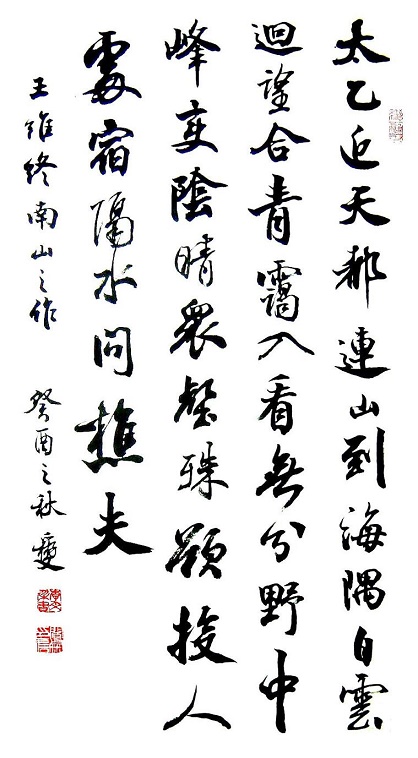 太乙近天都連山到海隅白雲
迴望合青靄入看無分野中
峰變陰晴衆壑殊欲投人
處宿隔水問樵夫
王維終南山之作 癸酉之秋